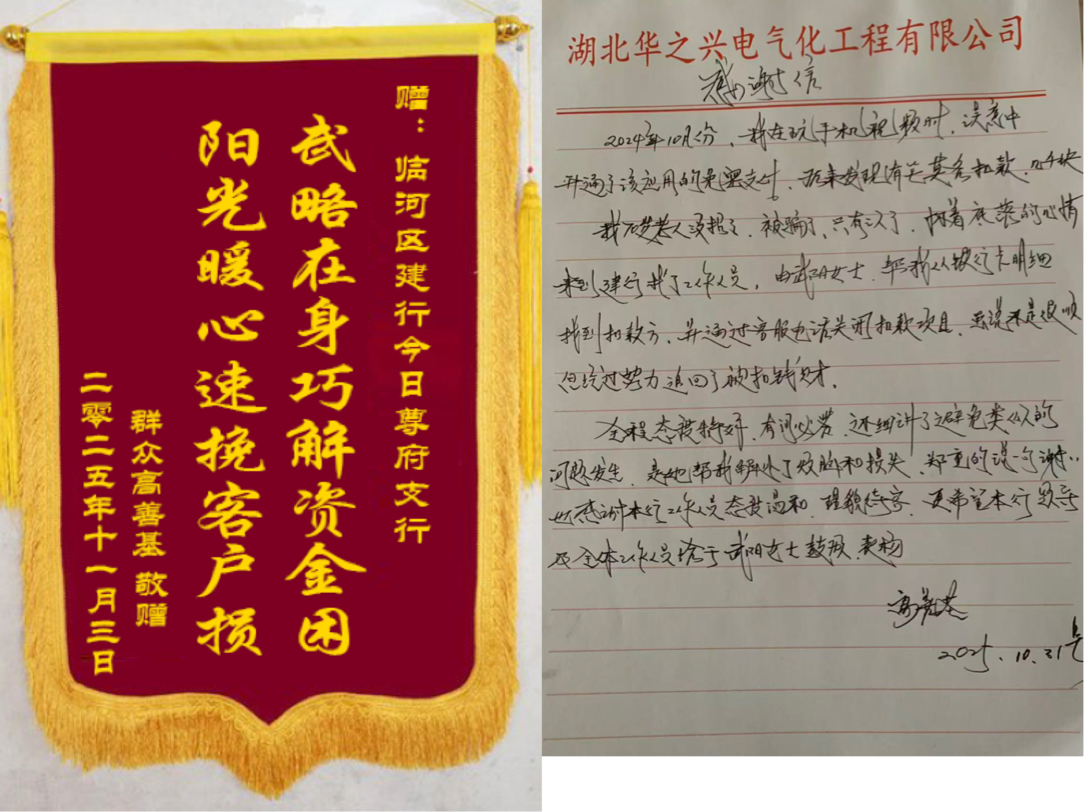 赠：临河区建行今日尊府支行
武略在身巧解资金困
阳光暖心速挽客户损
群众高善基 敬赠
二零二五年十一月三日
湖北华之兴电气化工程有限公司
感谢信
2024年10月份，我在玩手机视频时，误意中
开通了该应用的免密支付，后来发现有无英名扣款，几千块
我 没招了，被骗了，只有 了，怀着 落的心情
来到建行找了工作人员，由武阳女士，帮我从银行卡明细
找到扣款方，并通过客服电话关闭扣款项目，虽说不是很顺
但经过努力追回了被扣钱财。
全程态度特好，有问必答，还细讲了避免类似的
问题发生，是她帮我解决了烦恼和损失，郑重的说一句谢谢
也感谢本行工作人员态度温和，理貌待客，更希望本行领导
及全体工作人员给于武阳女士鼓励，表扬
高善基
2025.10.31号